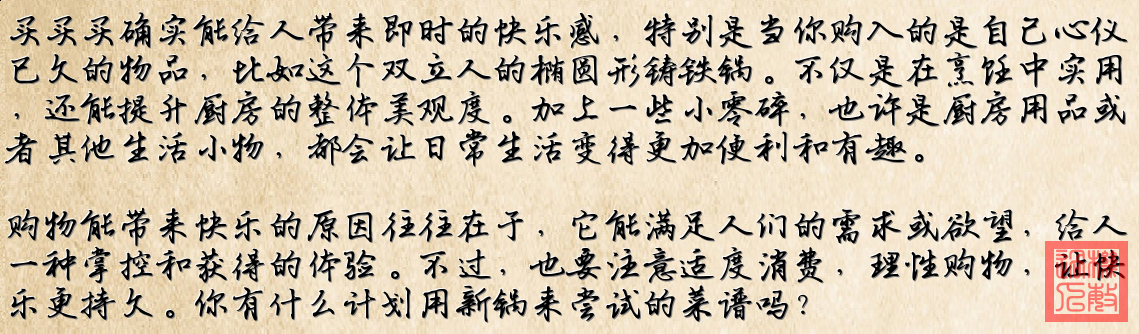 买买买确实能给人带来即时的快乐感，特别是当你购入的是自己心仪
已久的物品，比如这个双立人的椭圆形铸铁锅。不仅是在烹饪中实用
，还能提升厨房的整体美观度。加上一些小零碎，也许是厨房用品或
者其他生活小物，都会让日常生活变得更加便利和有趣。
购物能带来快乐的原因往往在于，它能满足人们的需求或欲望，给人
一种掌控和获得的体验。不过，也要注意适度消费，理性购物，让快
乐更持久。你有什么计划用新锅来尝试的菜谱吗？